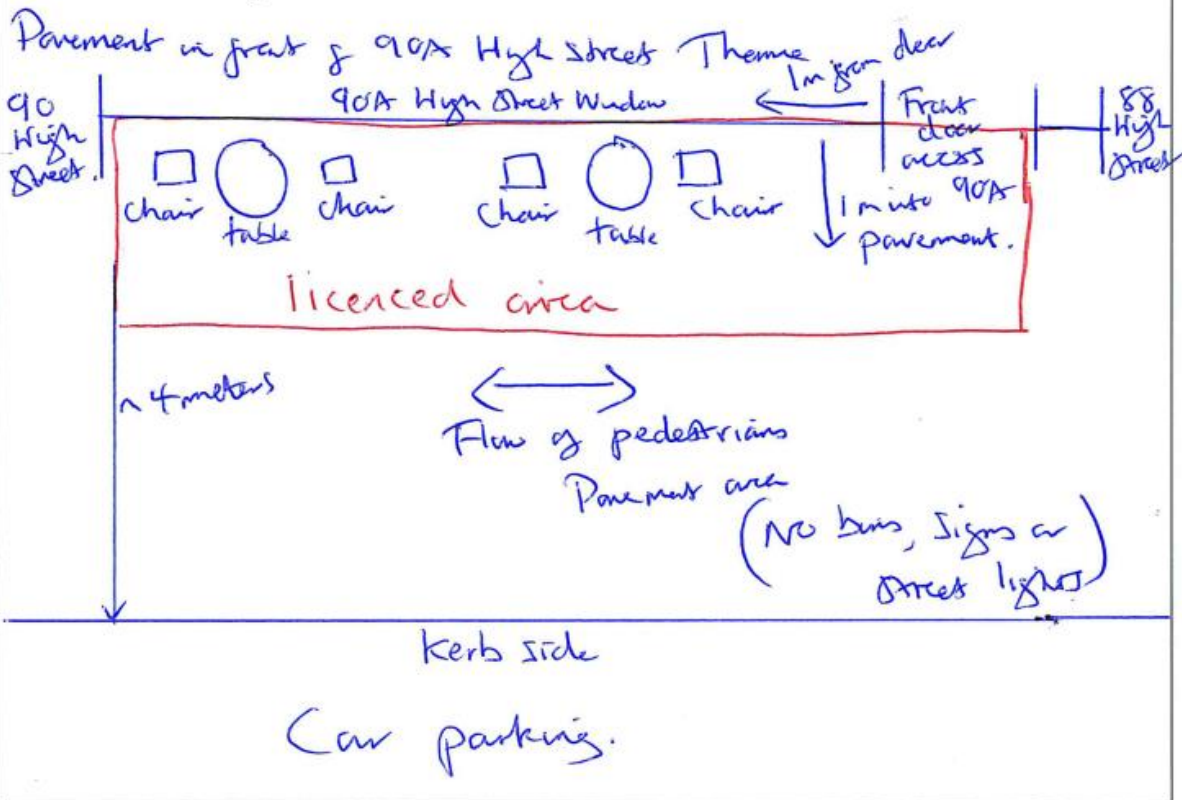 Pavement in front of 90A High Street Thame
1m from door
90 High Street.
90A High Street Window
Front door access 90A
88 High Street
chair
table
chair
chair
table
chair
1m into pavement.
licenced area
~ 4 meters
Flow of pedestrians
Pavement area
(No bins, signs or
street lights)
Kerb side
Car parking.